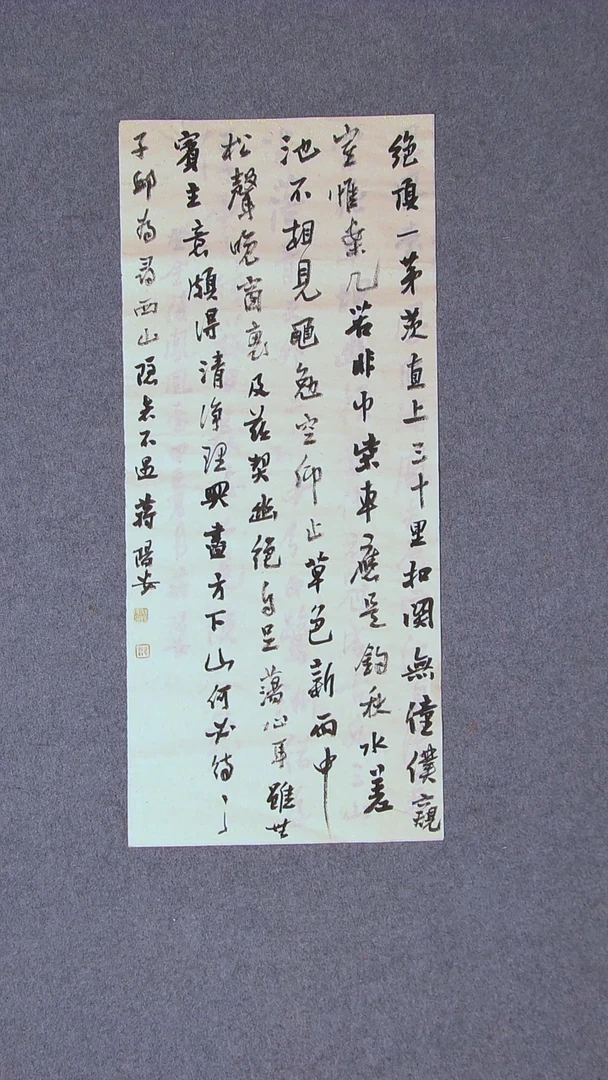 絕頂一茅茨直上三十里扣関無僮僕窺
室惟案几若非巾柴車應是釣秋水差
池不相見黽勉空仰止草色新雨中
松聲晚窗裏及茲契幽絕自足蕩心耳雖無
賓主意頗得清淨理興盡方下山何必待之
子邱為尋西山隱者不遇蔣陽